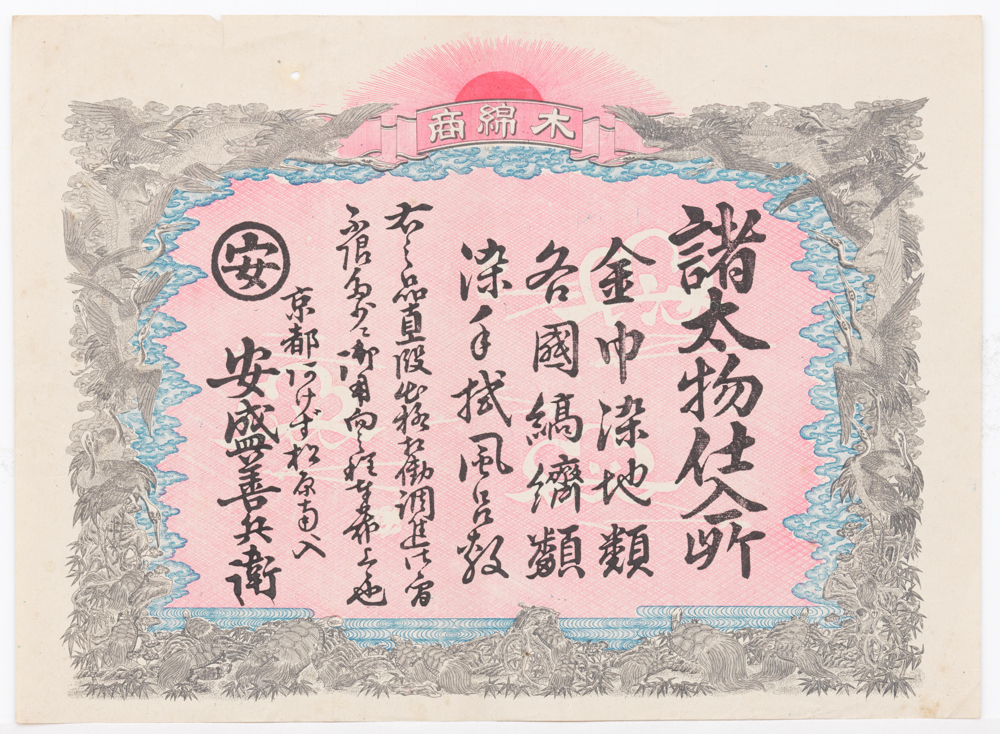 木綿商
諸太物仕入所
金巾染地類
各國縞纃類
染手拭風呂敷
右之品直段出格相働調進仕候間
不限多少ニ御用向之程奉希上也
京都 けず松原南入
安盛善兵衛
安